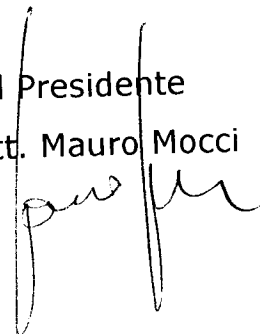 l Presidente
tt. Mauro Mocci